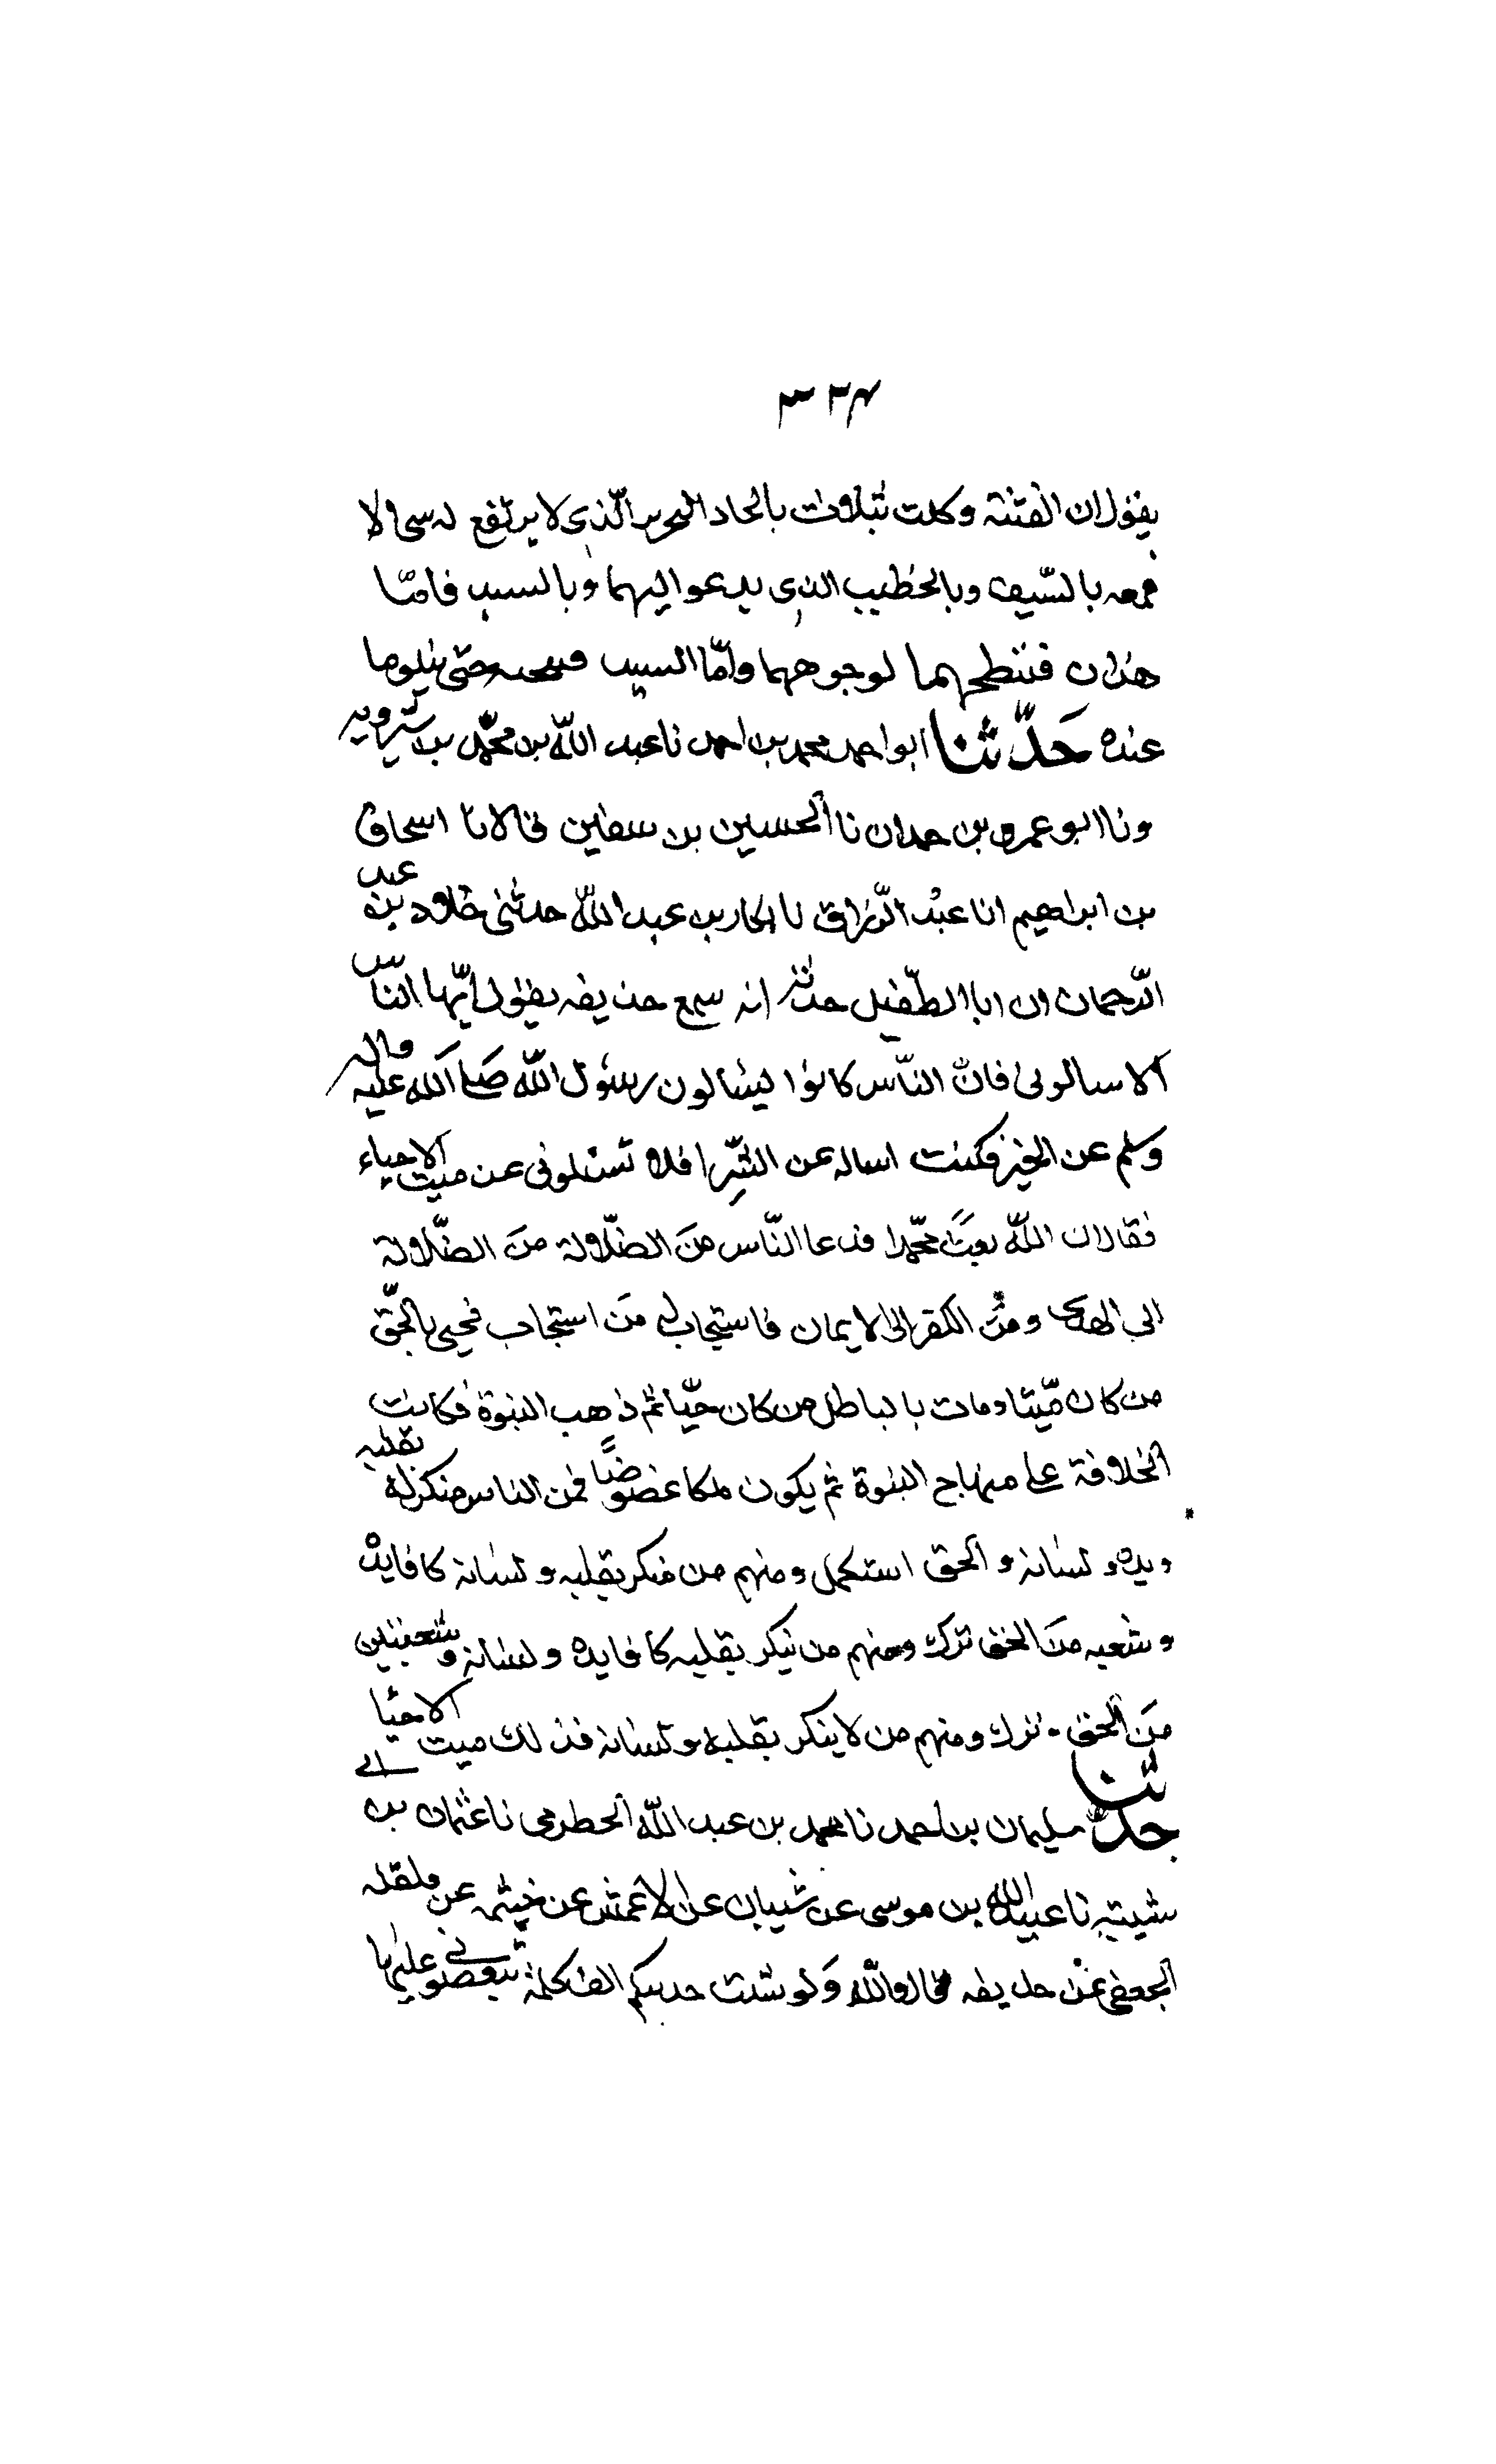 ٣٢٤
يقول ان الفتنة وكلت بثلاث بالحاد النحرير الذي لا يرتفع له شي الا
قمعه بالسيف وبالخطيب الذي يدعو اليهما وبالسيد فامّا
هذان فتبطحهما لوجوههما وامّا السيد حتى يبلو ما
عنده حَدّثنا ابو احمد محمد بن احمد نا عبد اللّه بن محمّد بن شيرويه
ونا ابو عمرو بن حمدان نا الحسين بن سفين قالا نا اسحاق
بن ابراهيم انا عبْد الرّزاق نا بن عبد اللّه حدثني خلاد بن عبد
الرّحمان ان ابا الطّفيل حدثه انه سمع حذيفه يقول ايّها النّاس
الا سالوني فانّ النّاس كانوا ليسالون رسول اللّه صَلى اللّه عليه واله
وسلم عن الخير وكنت اساله عن الشّر افلا تسئلوني عن ميت الاحياء
فقال ان اللّه بعث محمّدا فدعا النّاس منَ الضّلالة منَ الضّلالة
الى الهدى ومن الكفر الى الايمان فاستجاب له مَن استجاب فحيى بالحقّ
من كان ميّتا ومات بالباطل من كان حيّا ثم ذهب النبوة فكانت
الخلافة على منهاج النبوة ثم يكون ملكا عضوضًا فمن الناس من ينكر بقلبه
ويده ولسانه والحق استكمل ومنهم من ينكر بقلبه ولسانه كافا يده
وشعبه منَ الحق ترك ومنهم من ينكر بقلبه كافا يده ولسانه وشعبتين
مَن الحق ترك ومنهم من لا ينكر بقلبه ولسانه فذلك ميت الاحيا
حدّثنا سليمان بن احمد نا محمد بن عبد اللّه الحطرمى نا عثمان بن ابي
شيبه نا عبيد اللّه بن موسى عن شيبان عن الاعمش عن خيثمه عن فلفله
الجعفي عن حذيفه قال واللّه وَلو شئت حدثتكم الف كلمة تبغضوني عليها